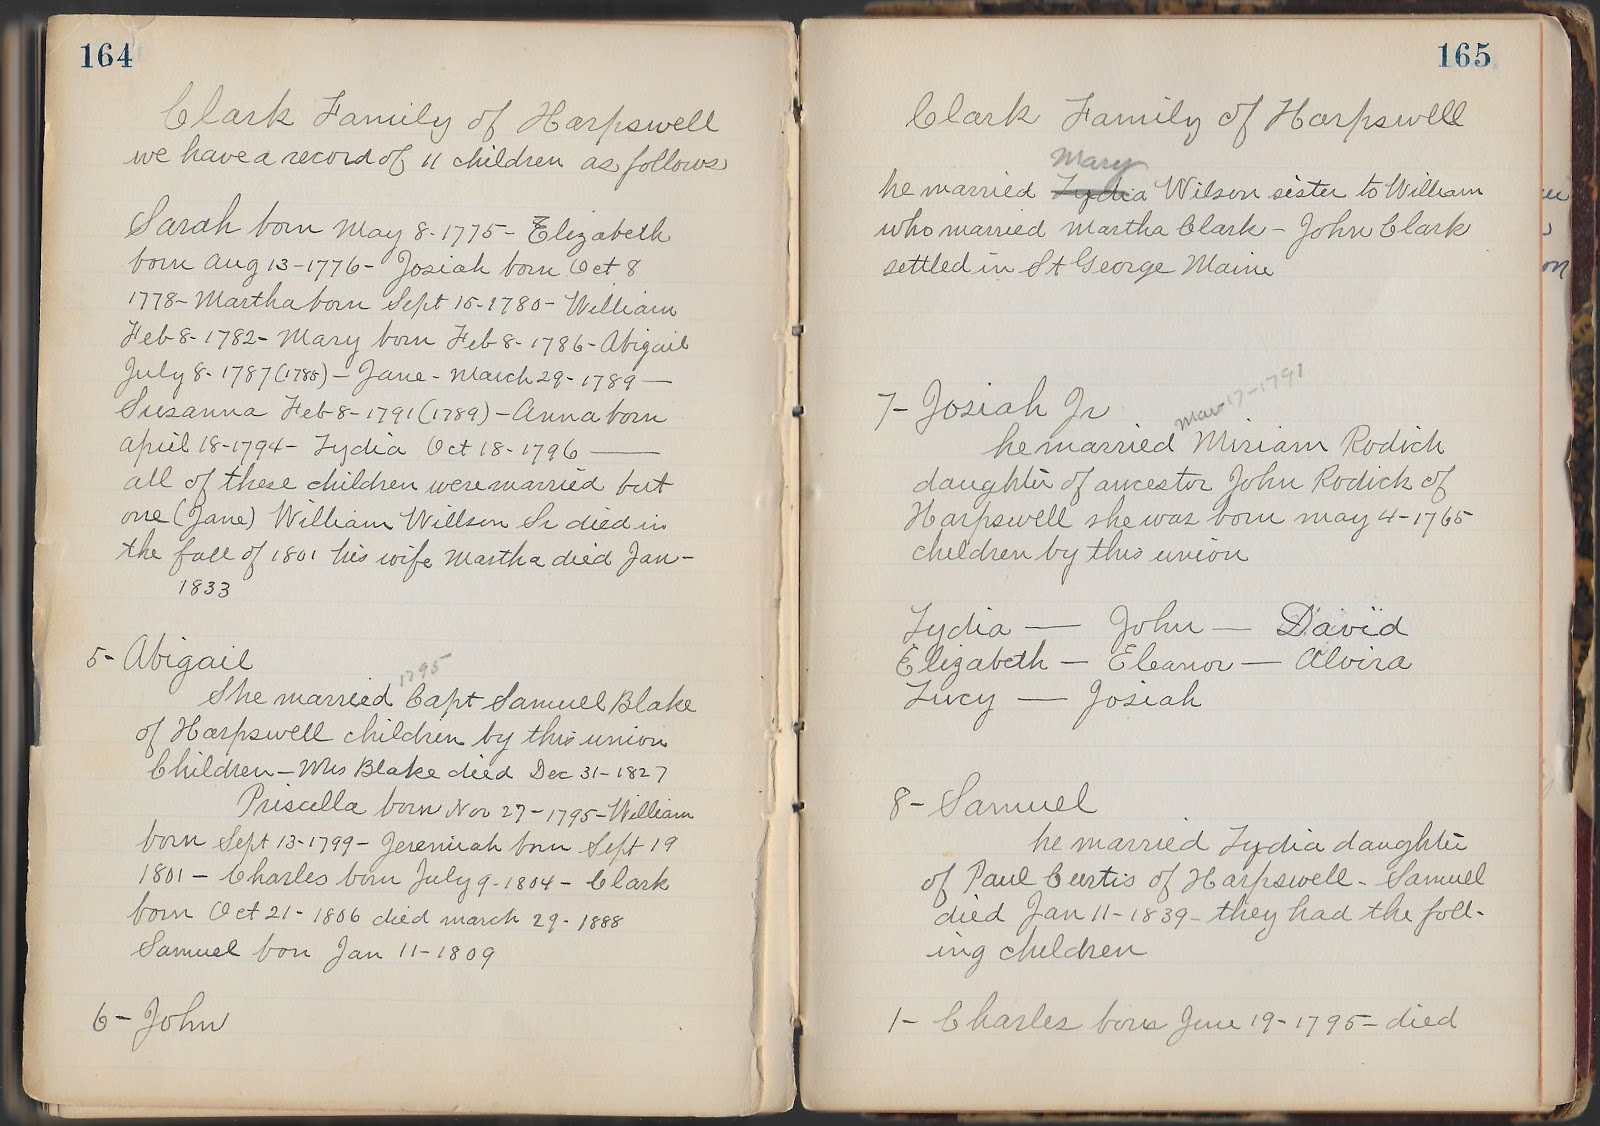 164
Clark Family of Harpswell
we have a record of 11 children as follows
Sarah born May 8-1775- Elizabeth
born Aug 13-1776- Josiah born Oct 8
1778- Martha born Sept 15-1780- William
Feb 8-1782- Mary born Feb 8-1786- Abigail
July 8-1787 (1788) - Jane - March 29-1789 —
Susanna Feb 8-1791 (1789) - Anna born
April 18-1794- Lydia Oct 18-1796 —
all of these children were married but
one (Jane) William Willson Sr died in
the fall of 1801 his wife Martha died Jan-
1833
5- Abigail
1795
She married Capt Samuel Blake
of Harpswell children by this union
Children - Mrs Blake died Dec 31-1827
Priscilla born Nov 27-1795- William
born Sept 13-1799- Jeremiah born Sept 19
1801 - Charles born July 9-1804 - Clark
born Oct 21-1806 died March 29-1888
Samuel born Jan 11-1809
6- John
165
Clark Family of Harpswell
Mary
he married Lydia Wilson sister to William
who married Martha Clark - John Clark
settled in St George Maine
7- Josiah Jr
Mar 17-1791
he married Miriam Rodick
daughter of ancestor John Rodick of
Harpswell she was born May 4-1765
children by this union
Lydia — John — David
Elizabeth — Eleanor — Alvira
Lucy — Josiah
8- Samuel
he married Lydia daughter
of Paul Curtis of Harpswell - Samuel
died Jan 11-1839- they had the foll-
ing children
1- Charles born June 19-1795- died